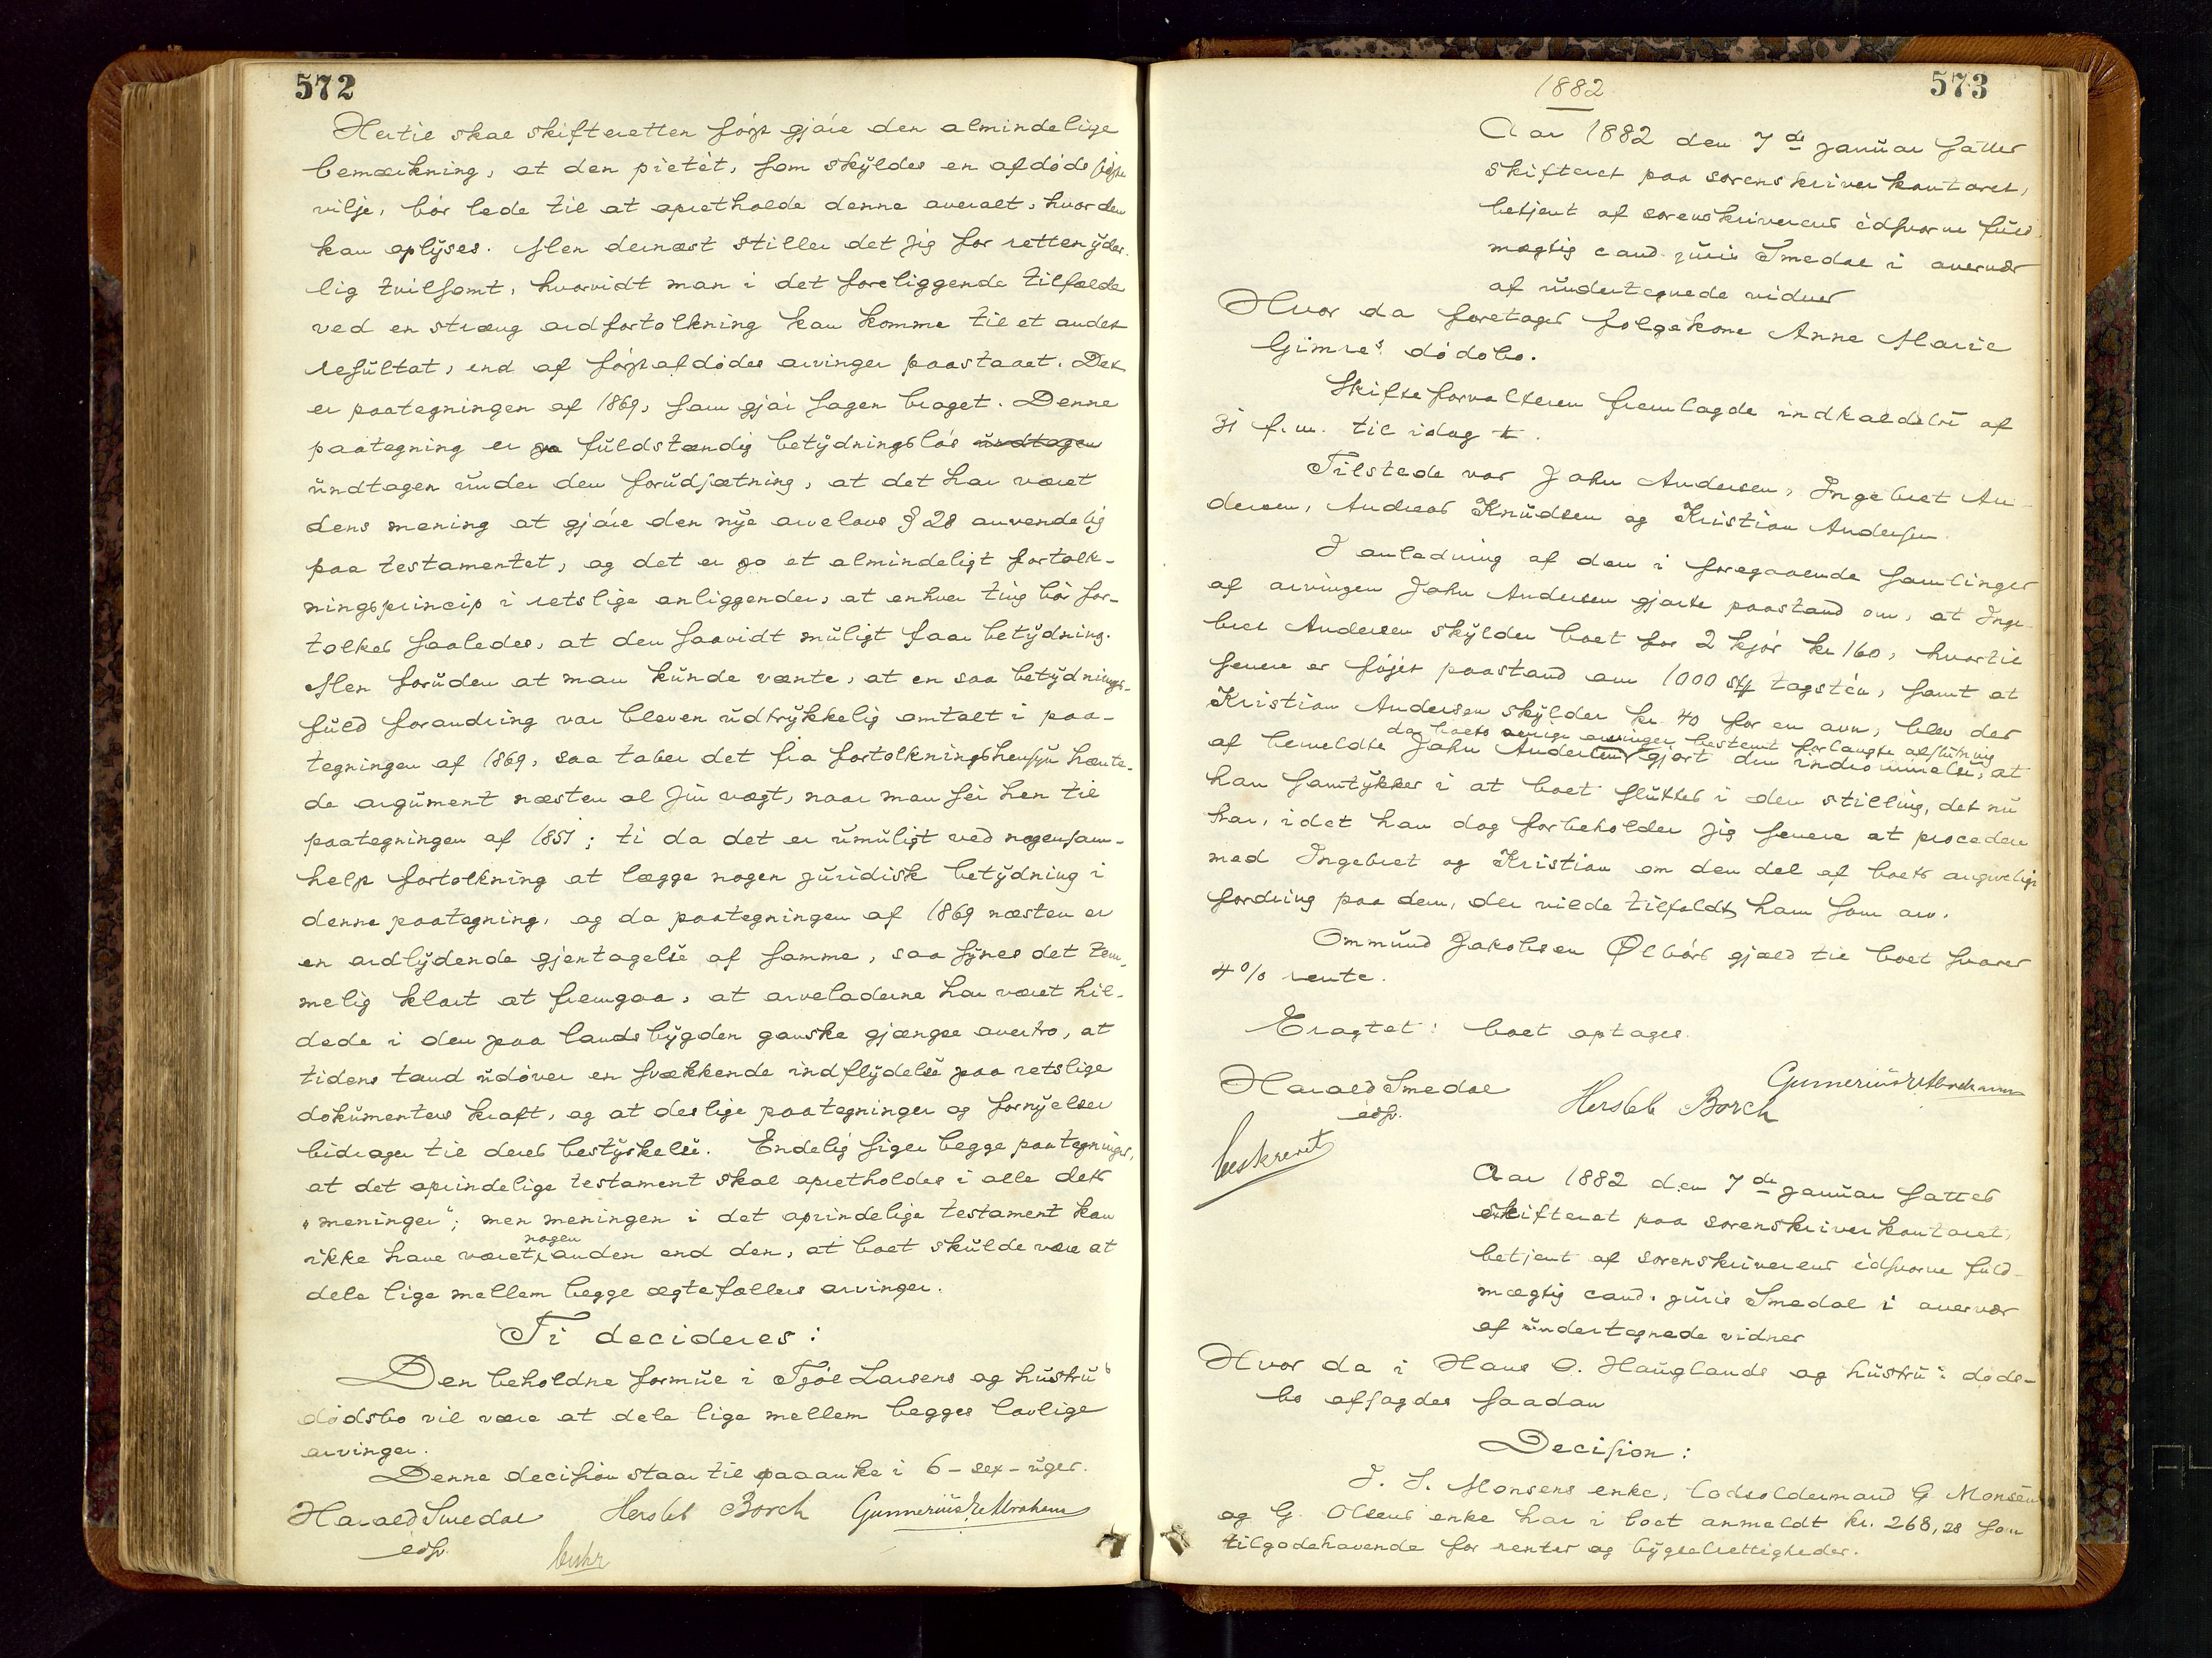 572
Hertil skal skifteretten først gjøre den almindelige
bemærkning, at den pietét, som skyldes en afdøds sidste
vilje, bør lede til at opretholde denne overalt, hvor den
kan oplyses. Men dernæst stiller det sig for retten yder-
lig tvilsomt, hvorvidt man i det foreliggende tilfælde
ved en stræng ordfortolkning kan komme til et andet
resultat, end af førstafdødes arvinger paastaaet. Det
er paategningen af 1869, som gjør sagen broget. Denne
paategning er jo fuldstændig betydningsløs undtagen
undtagen under den forudsætning, at det har været
dens mening at gjøre den nye arvelovs § 28 anvendelig
paa testamentet, og det er jo et almindeligt fortolk-
ningsprincip i retslige anliggender, at enhver ting bør for-
tolkes saaledes, at den saavidt muligt faar betydning.
Men foruden at man kunde vænte, at en saa betydnings-
fuld forandring var bleven udtrykkelig omtalt i paa-
tegningen af 1869, saa taber det fra fortolkningshensyn hænte-
de argument næsten al sin vægt, naar man ser hen til
paategningen af 1851; ti da det er umuligt ved nogensom-
helst fortolkning at lægge nogen juridisk betydning i
denne paategning, og da paategningen af 1869 næsten er
en ordlydende gjentagelse af samme, saa synes det tem-
melig klart at fremgaa, at arveladerne har været hil-
dede i den paa landsbygden ganske gjængse overtro, at
tidens tand udøver en svækkende indflydelse paa retslige
dokumenters kraft, og at deslige paategninger og fornyelser
bidrager til deres bestyrkelse. Endelig siger begge paategninger,
at det oprindelige testament skal opretholdes i alle dets
"meninger"; men meningen i det oprindelige testament kan
nogen
ikke have været anden end den, at boet skulde være at
dele lige mellem begge ægtefællers arvinger.
Ti decideres:
Den beholdne formue i Tjøl Larsens og hustrus
dødsbo vil være at dele lige mellem begges lovlige
arvinger.
Denne decision staar til paaanke i 6 - sex - uger.
Harald Smedal Hersleb Borch Gunnerius Abrahams
edsv.
beskr
573
1882
Aar 1882 den 7de januar sattes
skifteret paa sorenskriverkontoret,
betjent af sorenskriverens edsvorne fuld-
mægtig cand. juris Smedal i overvær
af undertegnede vidner
Hvor da foretages følgekone Anne Marie
Gimres dødsbo.
Skifteforvalteren fremlagde indkaldelse af
31 f. m. til idag t.
Tilstede var John Andersen, Ingebret An-
dersen, Andreas Knudsen og Kristian Andersen.
I anledning af den i foregaaende samlinger
af arvingen John Andersen gjorte paastand om, at Inge-
bret Andersen skylder boet for 2 kjør kr 160, hvortil
senere er føjet paastand om 1000 stk tagstén, samt at
Kristian Andersen skylder kr. 40 for en ovn, blev der
da boets øvrige arvinger bestemt forlangte afslutning
af bemeldte John Andersen gjort den indrømmelse, at
han samtykker i at boet sluttes i den stilling, det nu
har, idet han dog forbeholder sig senere at procedere
med Ingebret og Kristian om den del af boets angivelige
fordring paa dem, der vilde tilfaldt ham som arv.
Ommund Jakobsen Ølbørs gjæld til boet svarer
4% rente.
Eragtet: boet optages.
Harald Smedal Hersleb Borch Gunnerius Abrahams
edsv.
beskrevet
Aar 1882 den 7de januar sattes
skifteret paa sorenskriverkontoret,
betjent af sorenskriverens edsvorne fuld-
mægtig cand. juris Smedal i overvær
af undertegnede vidner
Hvor da i Hans O. Hauglands og hustrus døds-
bo afsagdes saadan
Decision:
J. S. Monsens enke, lodsoldermand G Monsen
og G. Olsens enke har i boet anmeldt kr. 268,28 som
tilgodehavende for renter og bygselrettigheder.